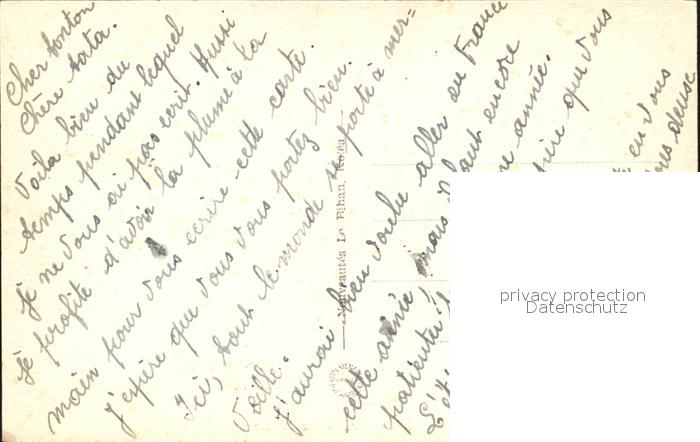 Cher tonton
Chère tata.
Voilà bien du
temps pendant lequel
Je ne vous ai pas ecrit. Aussi
Je profite d'avoir la plume à la
main pour vous ecrire cette carte.
J'espère que vous vous portez bien.
Ici, tout le monde se porte à mer=
veille.
J'aurai bien voulu aller en France
cette année mais il faut encore
patienter une année.
que vous
en vous
tous deux
Nouveautés Le Bihan,
privacy protection
Datenschutz